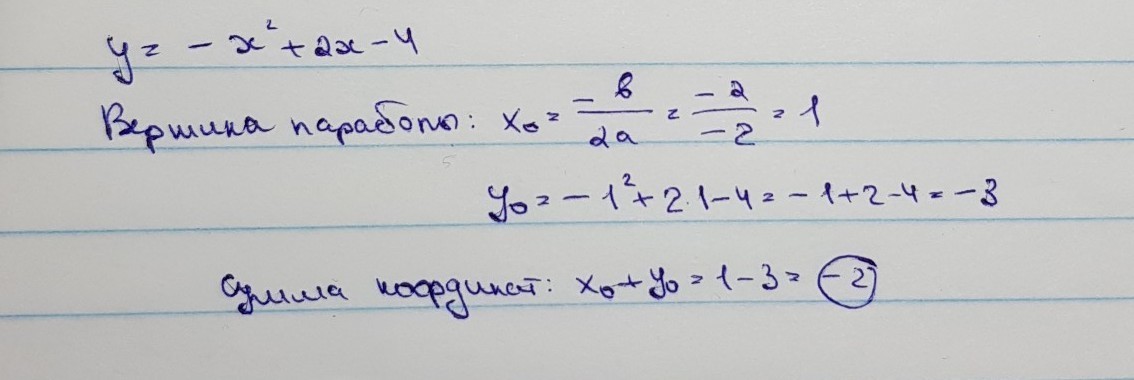 y = - x² + 2x - 4
Вершина параболы: x₀ = -в/2a = -2/-2 = 1
y₀ = - 1² + 2·1 - 4 = - 1 + 2 - 4 = - 3
Сумма координат: x₀ + y₀ = 1 - 3 = -2